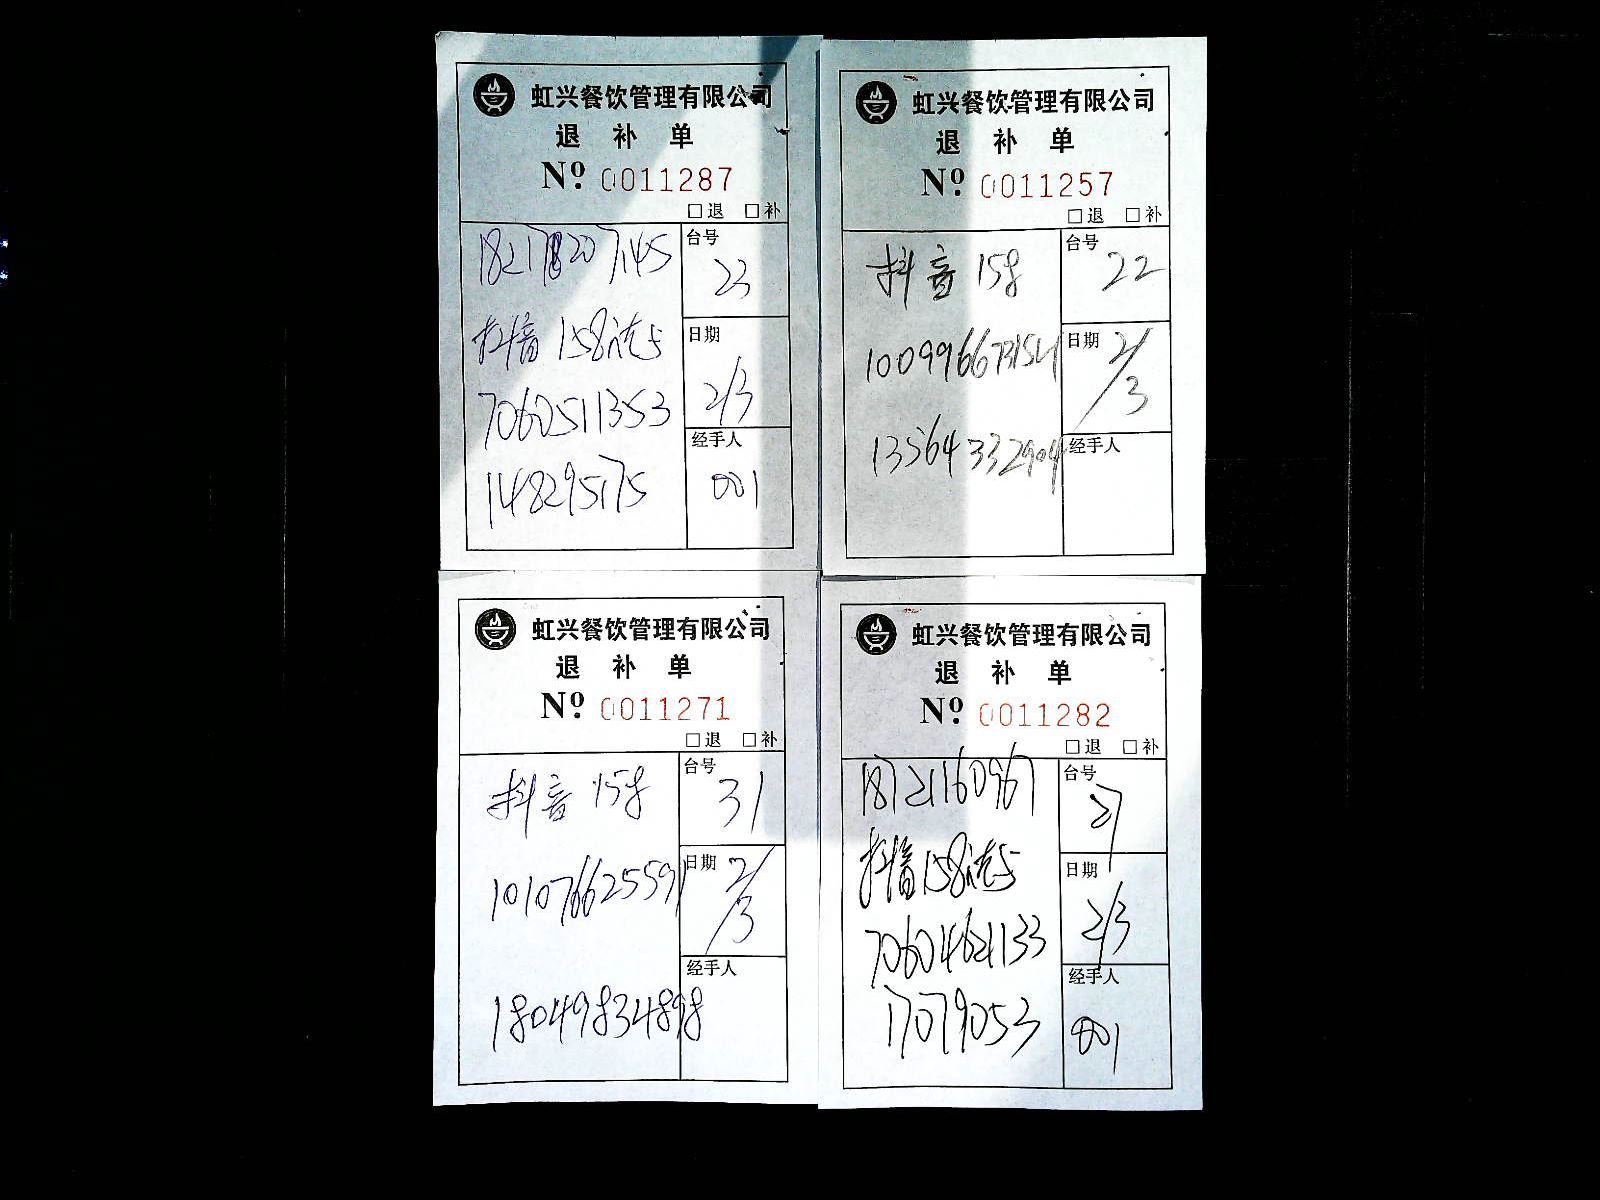 虹兴餐饮管理有限公司
退 补 单
Nº: 0011287
□退 □补
182178207145
台号
23
抖音158选5
日期
2/3
7060511353
148295175
经手人
001
虹兴餐饮管理有限公司
退 补 单
Nº: 0011257
□退 □补
抖音 158
台号
22
100996673154
日期
2/3
13564332904
经手人
虹兴餐饮管理有限公司
退 补 单
Nº: 0011271
□退 □补
抖音 158
台号
31
101076625591
日期
2/3
18049834898
经手人
虹兴餐饮管理有限公司
退 补 单
Nº: 0011282
□退 □补
18721160967
台号
27
抖音158选5
日期
2/3
70604621133
17079053
经手人
001